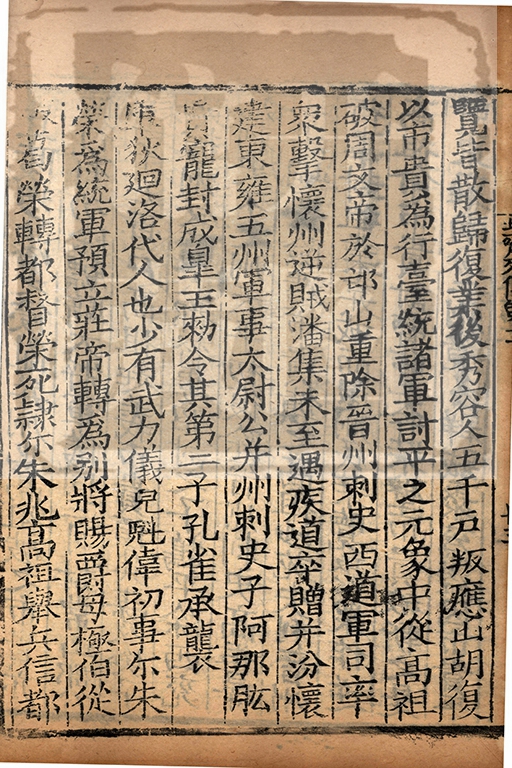 覽皆散歸復業後秀容人五千戸叛應山胡復
以市貴爲行臺統諸軍討平之元象中從髙祖
破周文帝於邙山重除晉州刺史西道軍司率
衆擊懷州逆賊潘集未至遇疾道卒贈并汾懷
建東雍五州軍事太尉公并州刺史子阿那肱
貴寵封成臯王勑令其第二子孔雀承襲
厙狄廻洛代人也少有武力儀皃魁偉初事尒朱
榮爲統軍預立莊帝轉爲别將賜爵毋極伯從
破葛榮轉都督榮死隷尒朱兆髙祖舉兵信都